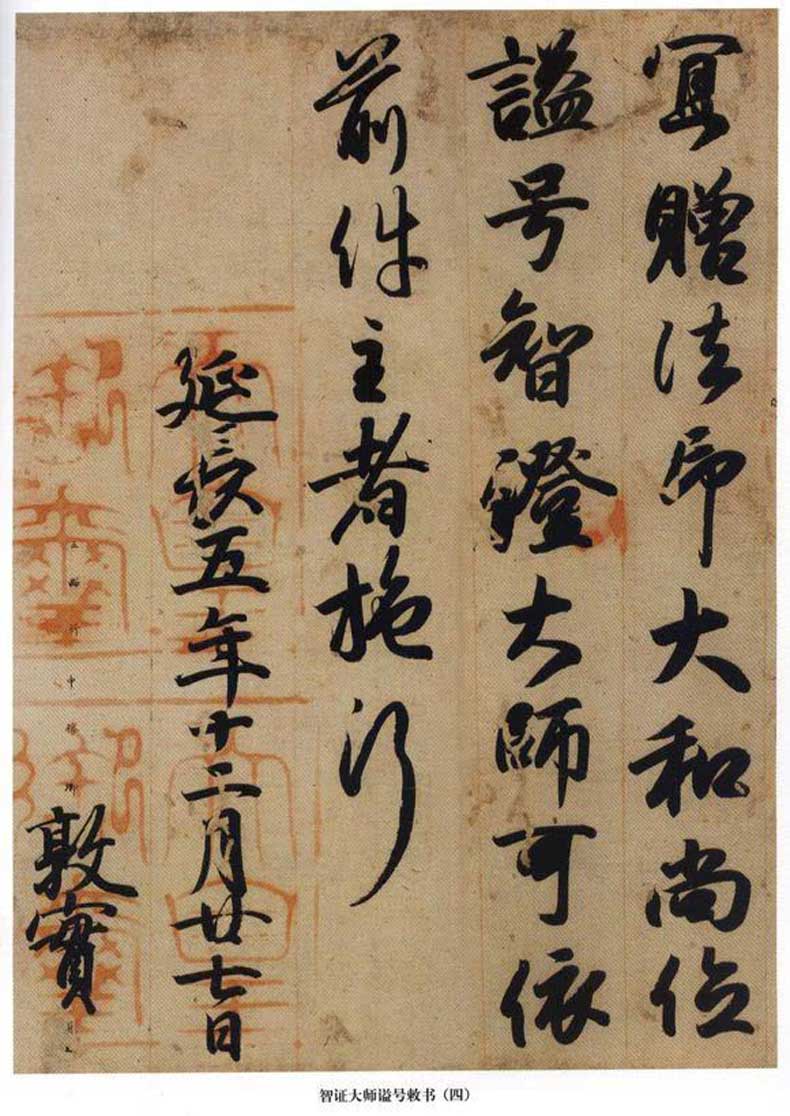 宜贈法印大和尚位
謚号智證大師可依
前件主者施行
延長五年十二月廿七日
敦實
智证大师谥号敕书（四）